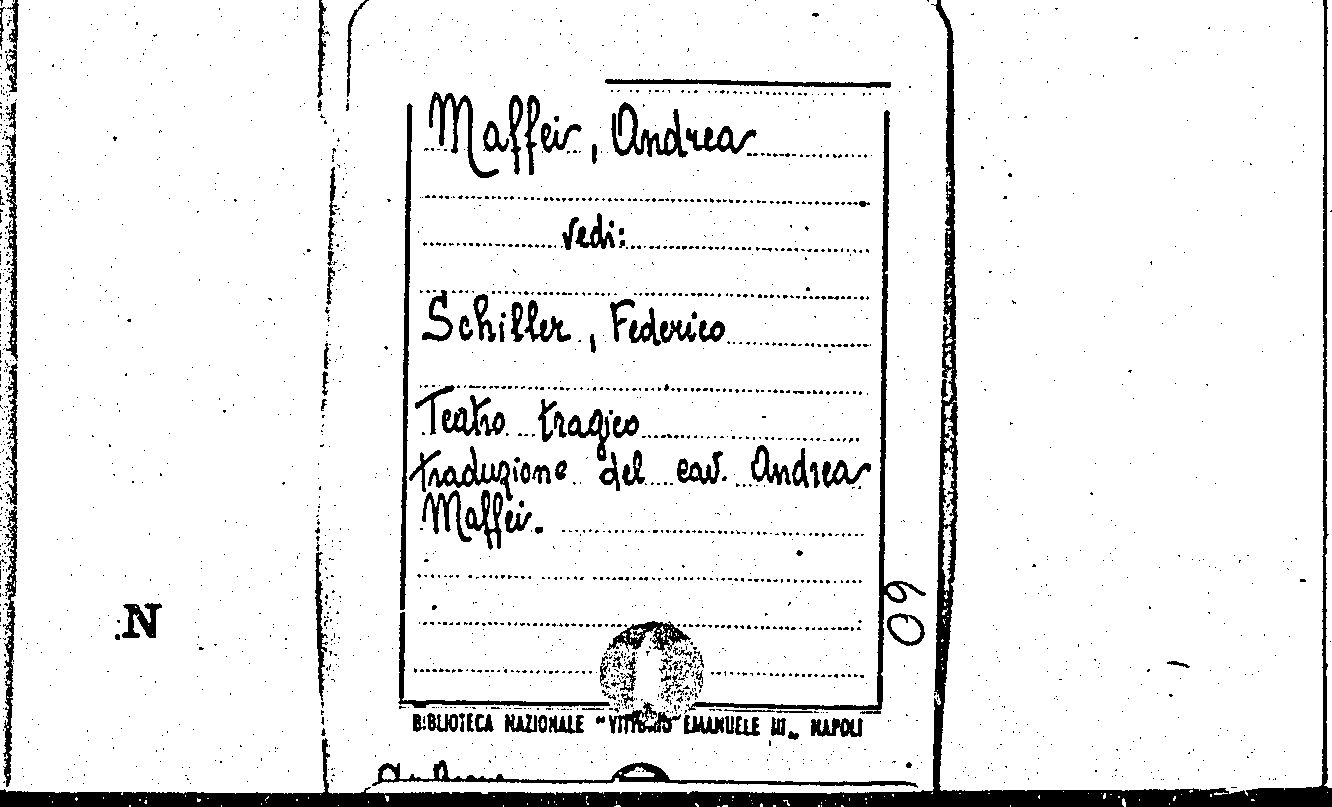 Maffei, Andrea
vedi:
Schiller, Federico
Teatro tragico
traduzione del cav. Andrea
Maffei.
60
N
BIBLIOTECA NAZIONALE "VITTORIO EMANUELE III„ NAPOLI